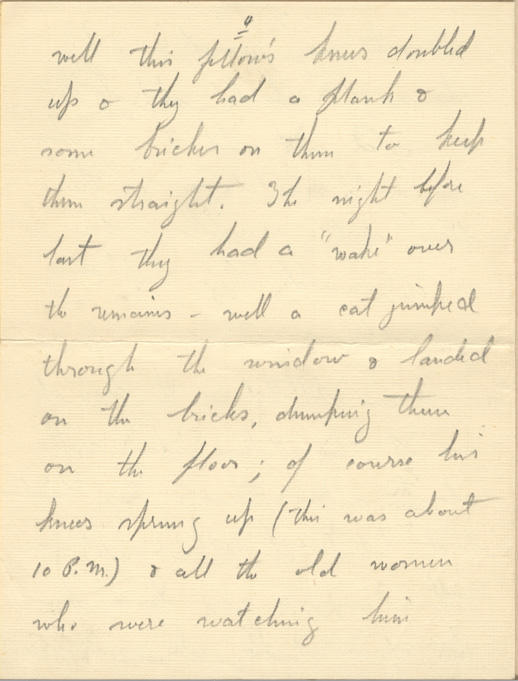 4
well this fellow's knees doubled
up & they had a plank &
some bricks on them to keep
them straight. The night before
last they had a "wake" over
the remains - well a cat jumped
through the window & landed
on the bricks, dumping them
on the floor; of course his
knees sprung up (this was about
10 P.M.) & all the old women
who were watching him